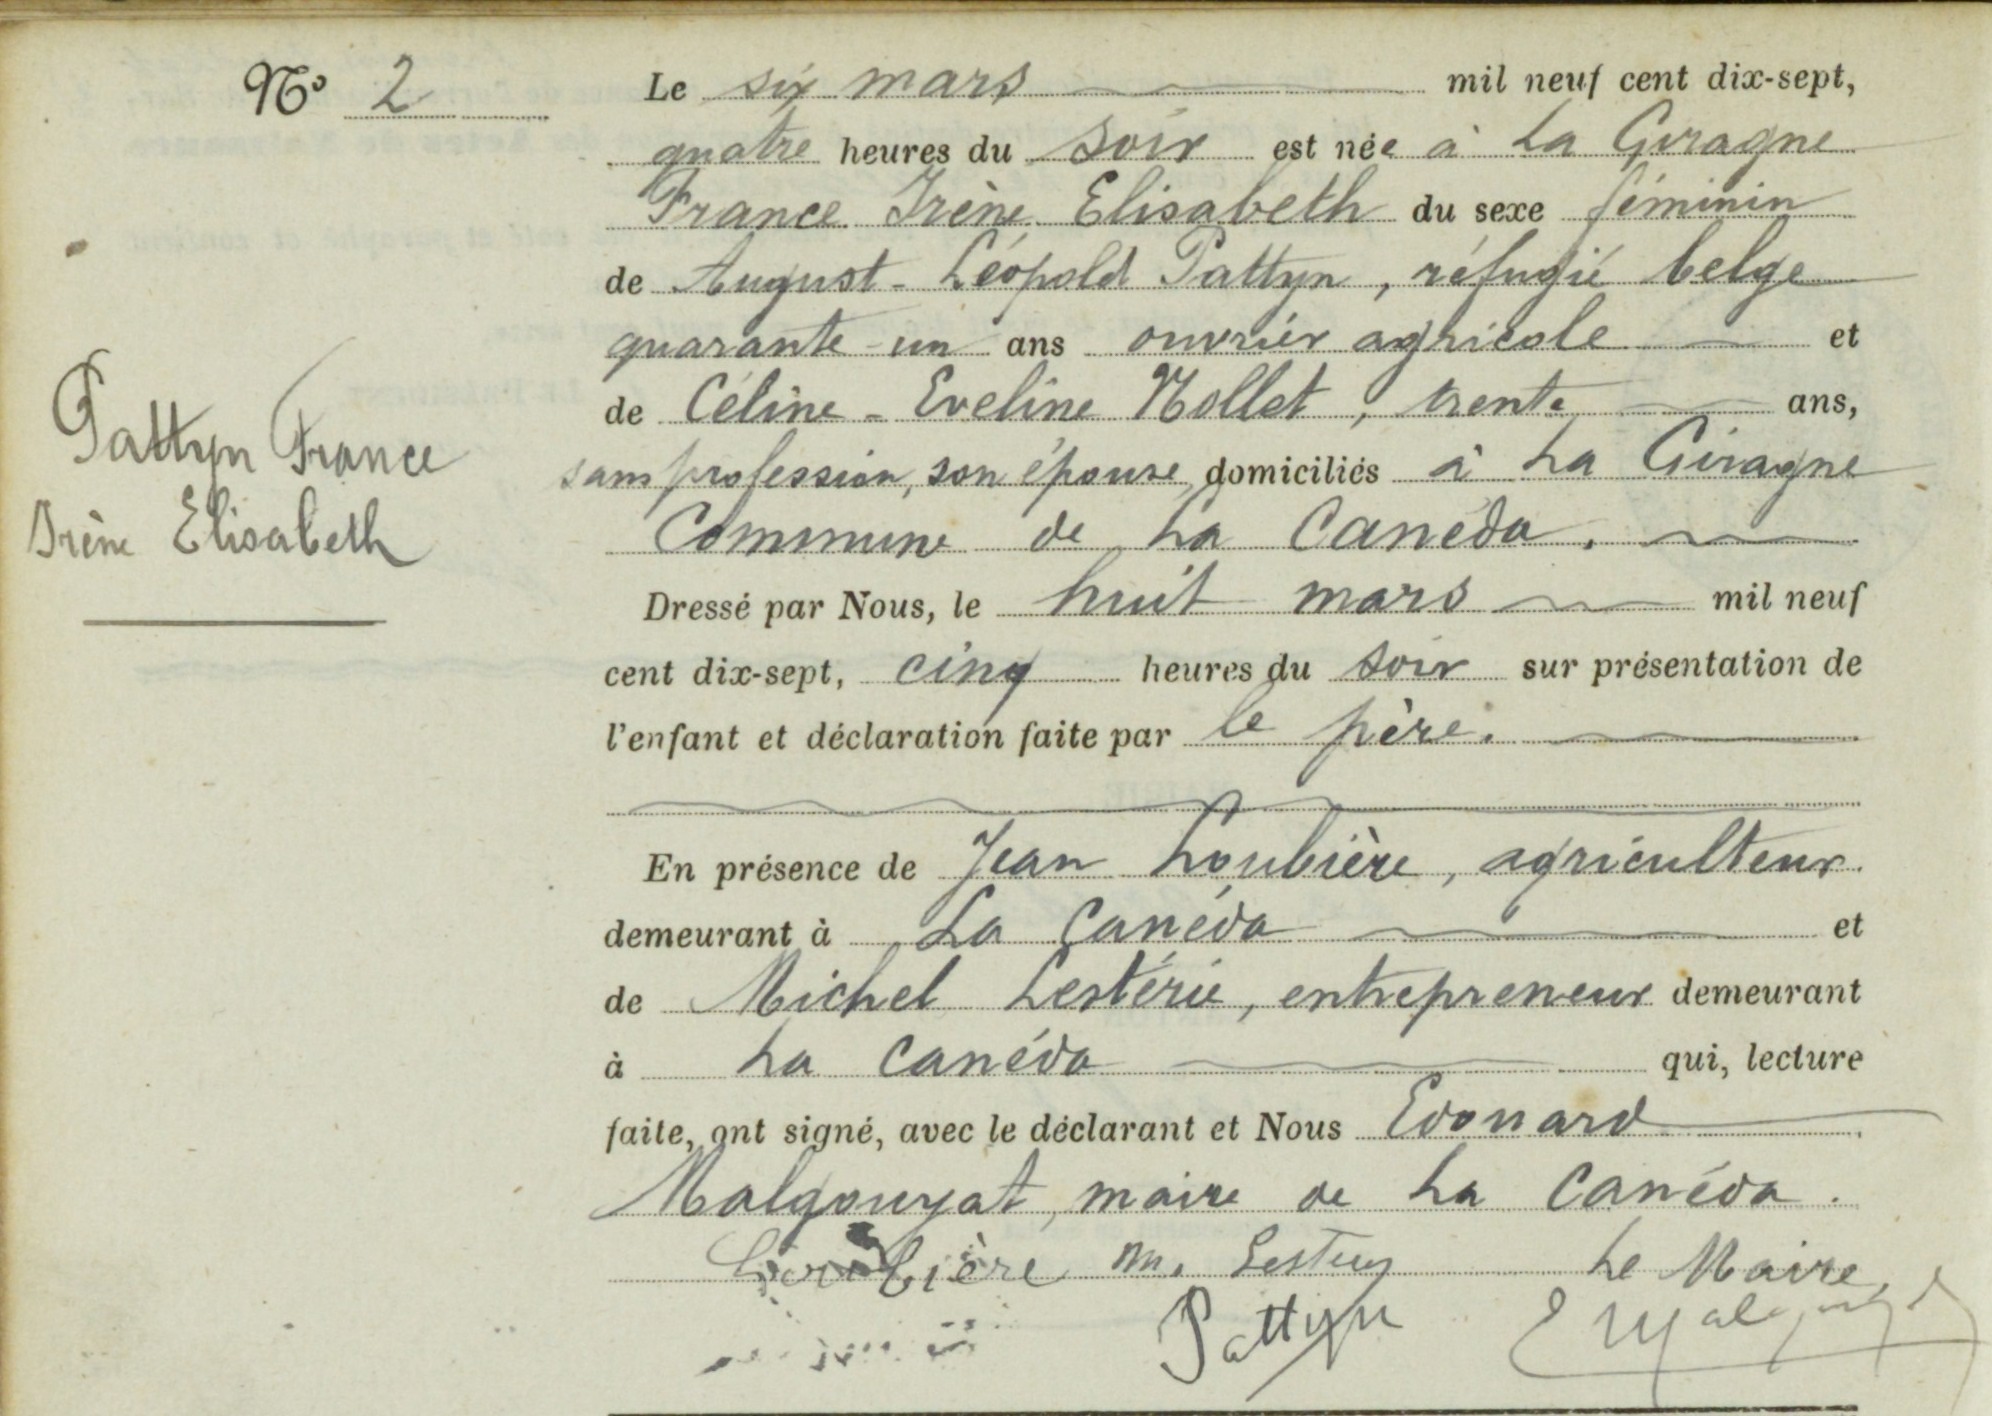 N° 2
Le six mars mil neuf cent dix-sept,
quatre heures du soir est née à La Giragne
France Irène Elisabeth du sexe féminin
de August-Léopold Pattyn, réfugié belge
quarante-un ans ouvrier agricole et
de Céline-Eveline Nollet, trente ans,
sans profession, son épouse domiciliés à La Giragne
Commune de La Canéda.
Pattyn France
Irène Elisabeth
Dressé par Nous, le huit mars mil neuf
cent dix-sept, cinq heures du soir sur présentation de
l'enfant et déclaration faite par le père.
En présence de Jean Loubière, agriculteur
demeurant à La Canéda et
de Michel Lestérie, entrepreneur demeurant
à La Canéda qui, lecture
faite, ont signé, avec le déclarant et Nous Edouard
Malgouyat, maire de La Canéda.
Loubière M. Lestery Le Maire,
Pattyn